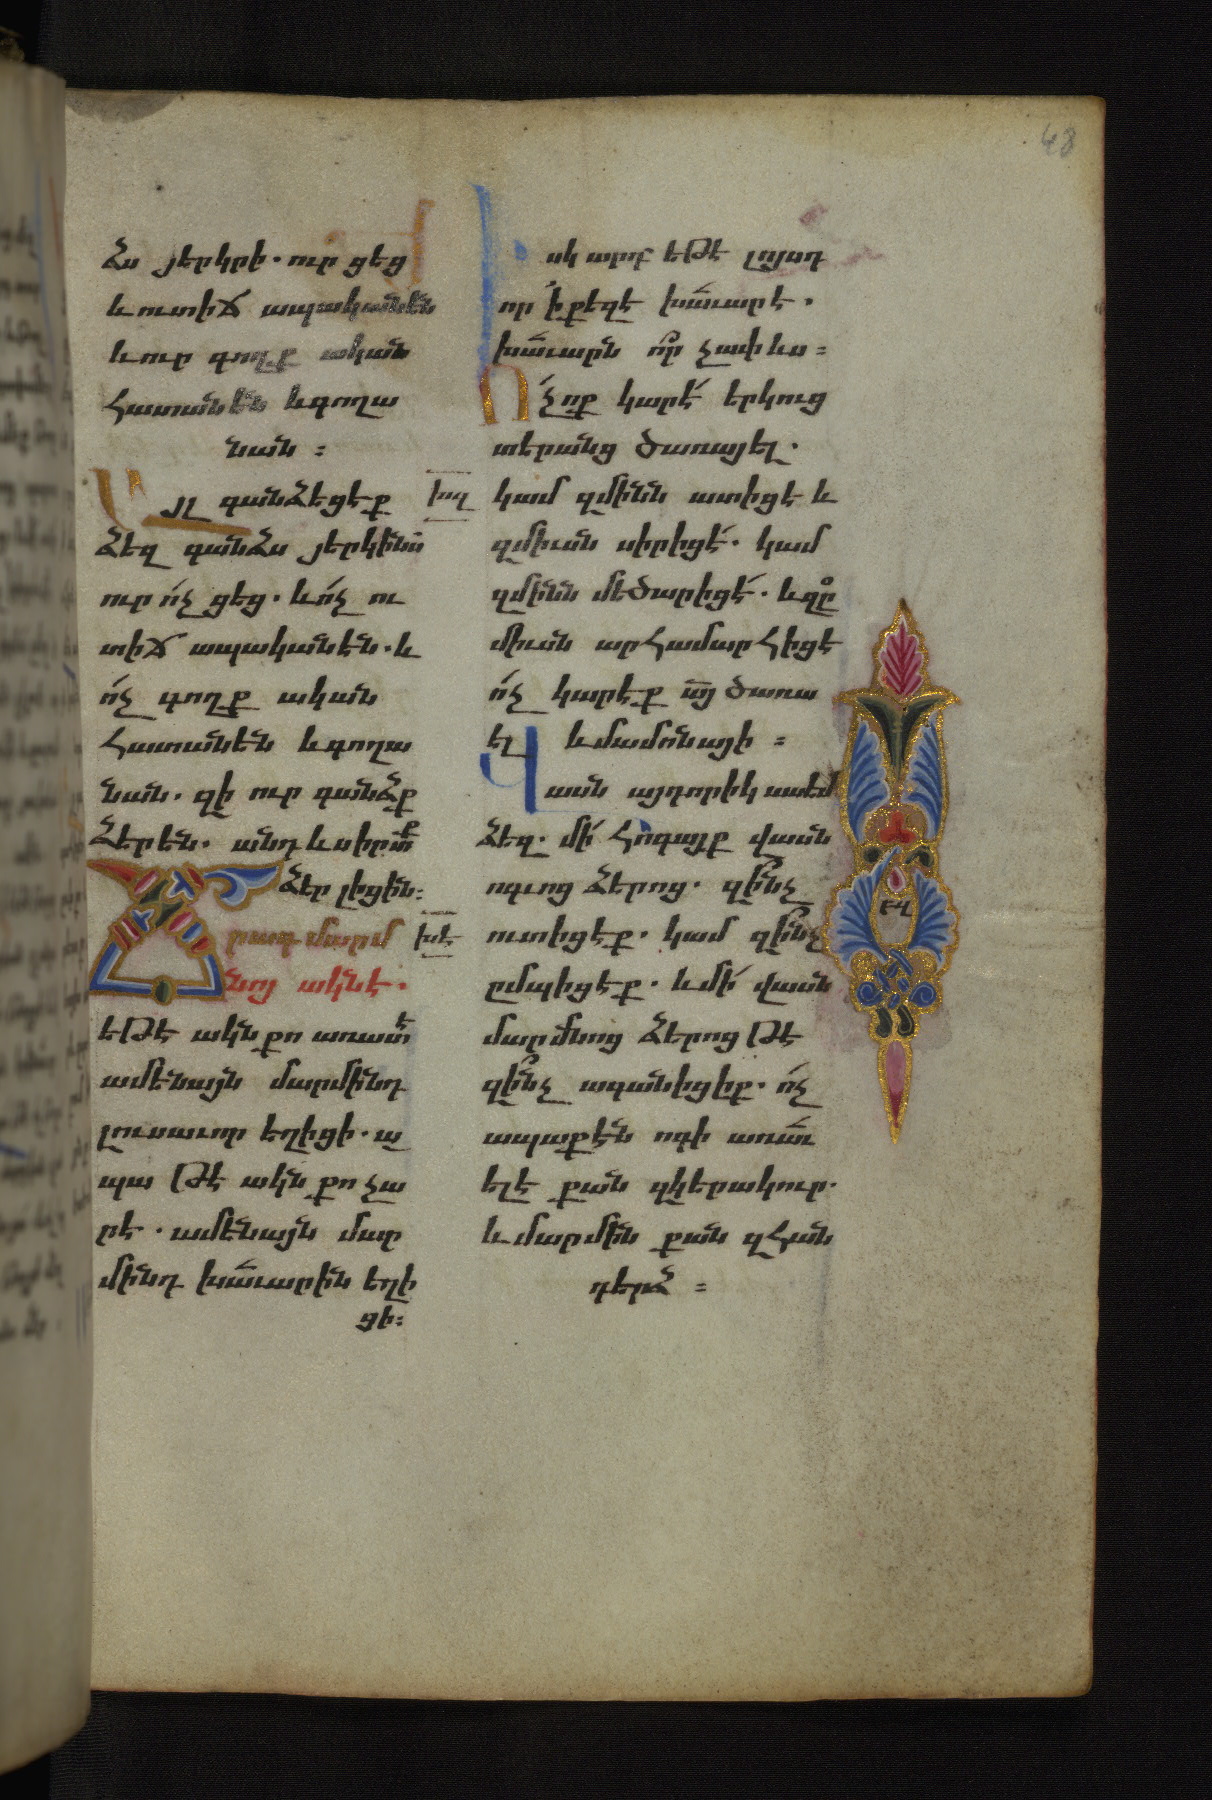 48
ձս յերկրի. ուր ցեց
և ուտիճ ապականեն
և ուր գողք ական
հատանեն և գողա
նան :
Այլ գանձեցէք
խդ
ձեզ գանձս յերկինս
ուր ոչ ցեց. և ոչ ու
տիճ ապականեն. և
ոչ գողք ական
հատանեն և գողա
նան. զի ուր գանձք
ձերեն. անդ և սիրտք
ձեր լիցին:
Ճրագ մարմ
խե
նոյ ակնէ.
եթէ ակն քո առատ է
ամենայն մարմինդ
լուսաւոր եղիցի. ա
պա թէ ակն քո չա
րէ. ամենայն մար
մինդ խաւարին եղի
ցի:
Իսկ արդ եթէ լոյսդ
որ ի քեզէ խաւարէ.
խաւարն ո՞ր չափ ևս :
Ոչ ոք կարէ երկուց
տերանց ծառայել.
կամ զմինն ատիցէ և
զմիւսն սիրիցէ. կամ
զմինն մեծարիցէ. և զը
միւսն արհամարհիցէ
ոչ կարէք ԱՅ ծառա
ել և մամոնայի :
Վասն այդորիկ ասեմ
ձեզ. մի հոգայք վասն
ոգւոց ձերոց. զինչ
ուտիցէք. կամ զինչ
ըմպիցէք. և մի վասն
մարմնոց ձերոց թէ
զինչ ագանիցիք. ոչ
ապաքէն ոգի առաւ
ելէ քան զկերակուր.
և մարմին քան զհան
դերձ :